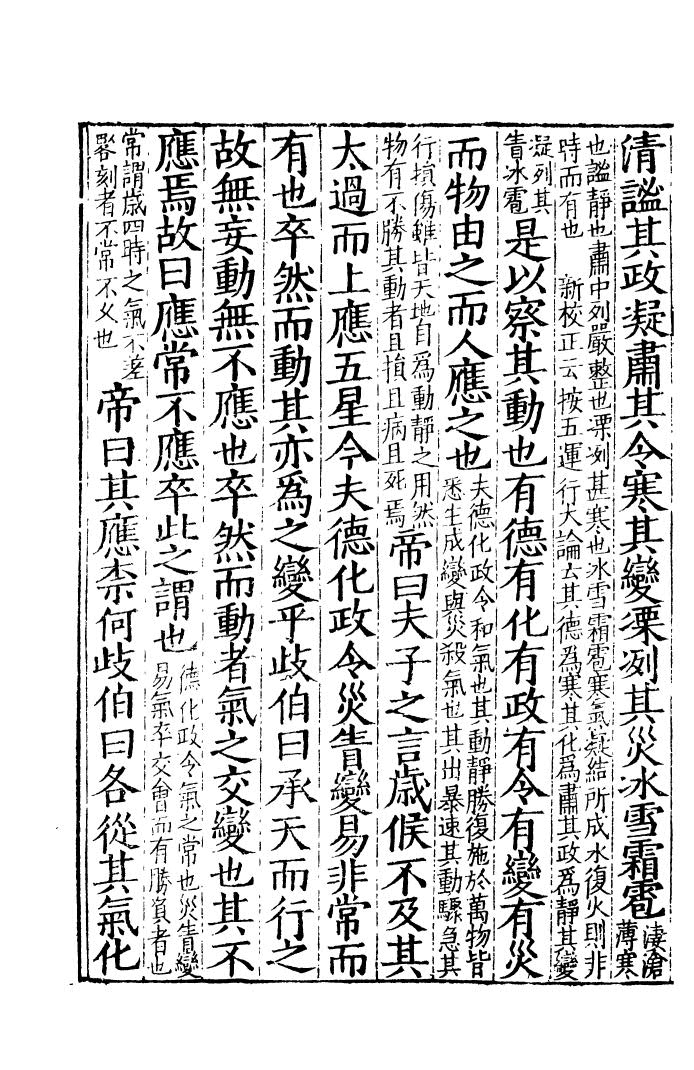 清謐其政凝肅其令寒其變凓冽其災冰雪霜雹
凄滄
薄寒
也謐靜也肅中列嚴整也凓冽甚寒也冰雪霜雹寒氣凝結所成水復火則非
時而有也　新校正云按五運行大論云其德爲寒其化爲肅其政爲靜其變
凝冽其
眚冰雹
是以察其動也有德有化有政有令有變有災
而物由之而人應之也
夫德化政令和氣也其動靜勝復施於萬物皆
悉生成變與災殺氣也其出暴速其動驟急其
行損傷雖皆天地自爲動靜之用然
物有不勝其動者且損且病且死焉
帝曰夫子之言歲候不及其
太過而上應五星今夫德化政令災眚變易非常而
有也卒然而動其亦爲之變乎歧伯曰承天而行之
故無妄動無不應也卒然而動者氣之交變也其不
應焉故曰應常不應卒此之謂也
德化政令氣之常也災眚變
易氣卒交會而有勝負者也
常謂歲四時之氣不差
晷刻者不常不久也
帝曰其應柰何歧伯曰各從其氣化